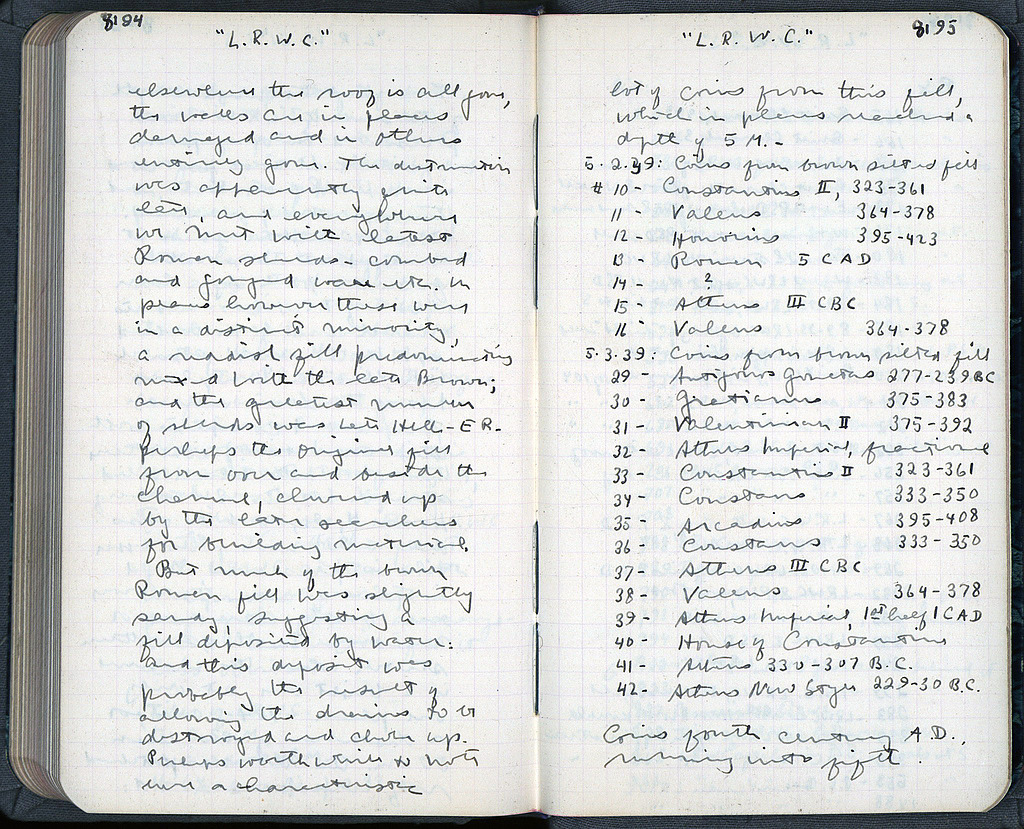 8194
"L. R. W. C."
elsewhere the roof is all gone,
the walls are in places
damaged and in others
entirely gone. The destruction
was apparently quite
late, and everywhere
we met with latest
Roman sherds - combed
and gouged ware etc. In
places however these were
in a distinct minority,
a reddish fill predominating
mixed with the late Brown;
and the greatest number
of sherds was Late Hell - E R -
perhaps the original fill
from over and beside the
channel, churned up
by the later searchers
for building material.
But much of the brown
Roman fill was slightly
sandy, suggesting a
fill deposited by water.
and this deposit was
probably the result of
allowing the drains to be
destroyed and churn up.
Perhaps worth while to note
here a characteristic
8195
"L. R. W. C."
lot of coins from this fill,
which in places reached a
depth of 5 M. -
5.2.39: Coins from brown silted fill
# 10 - Constantius II, 323-361
11 - Valens 364-378
12 - Honorius 395-423
13 Roman 5 C AD
14 - ?
15 Athens III C BC
16 Valens 364-378
5.3.39: Coins from brown silted fill
29 - Antigonos Gonatas 277-239 BC
30 - Gratianus 375-383
31 - Valentinian II 375-392
32 - Athens Imperial, fractional
33 Constantius II 323-361
34 - Constans 333-350
35 - Arcadius 395-408
36 - Constans 333-350
37 - Athens III C BC
38 - Valens 364-378
39 - Athens Imperial, 1st half 1 C AD
40 - House of Constantine
41 - Athens 330-307 B.C.
42 - Athens New Style 229-30 B.C.
Coins fourth century A.D.,
running into fifth.